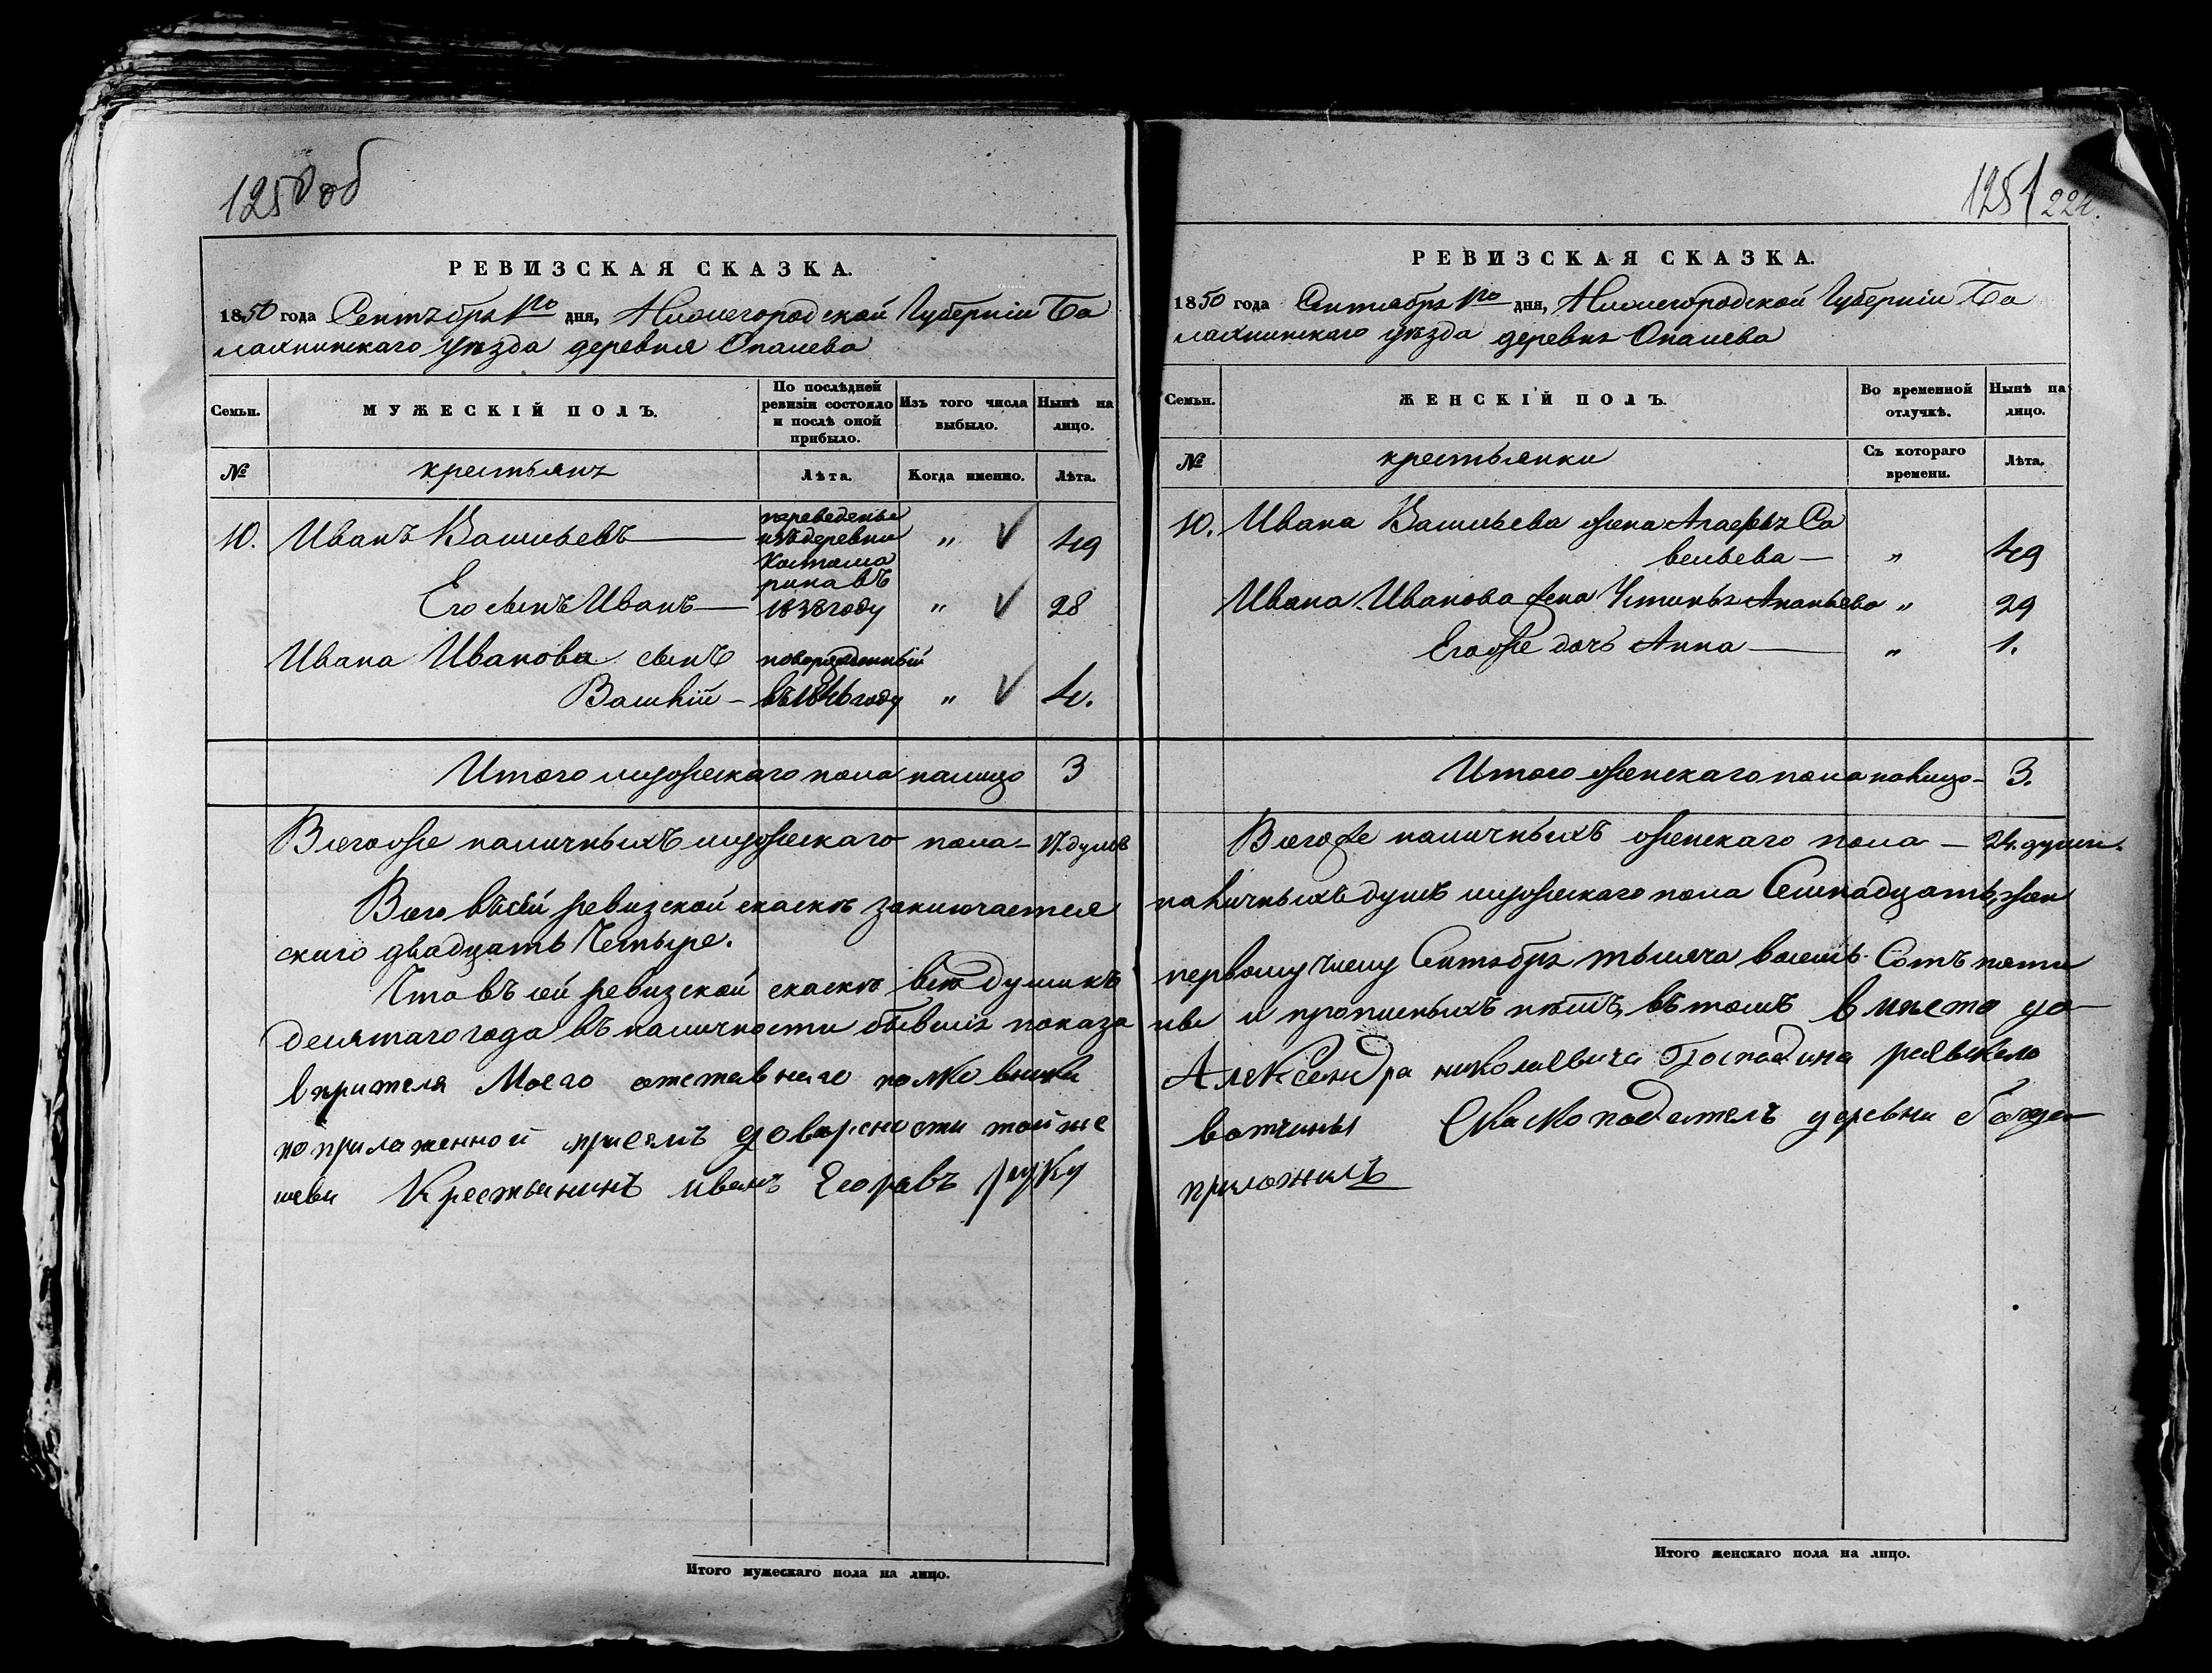 1250 об
РЕВИЗСКАЯ СКАЗКА.
1850 года Сентебря 1го дня, Нижегородской Губерніи Ба
лахнинскаго уѣзда деревня Опалева
Семьи.
МУЖЕСКІЙ ПОЛЪ.
По послѣдней ревизіи состояло и послѣ оной прибыло.
Изъ того числа выбыло.
Нынѣ на лицо.
№
крестьянъ
Лѣта.
Когда именно.
Лѣта.
10. Иванъ Васильевъ — переведены изъ деревни „ 49
Его сынъ Иванъ — рина въ 1838 году „ 28
Ивана Иванова сынъ новорожденный
Василій – въ 1846 году „ 4.
Итого мужескаго пола налицо 3
Всегоже наличныхъ мужескаго пола – 17. душъ
Всего въ сей ревизской скаскѣ заключается
скаго двадцать Четыре.
Что въ сей ревизской скаскѣ все души къ
десятаго года въ наличности бывшія показа
верителя Моего отставнаго полковника
по приложенной при семъ доверености той же
шева Крестьянинъ иванъ Егоровъ руку
Итого мужескаго пола на лицо.
1251
РЕВИЗСКАЯ СКАЗКА.
1850 года Сентября 1го дня, Нижегородской Губерніи Ба
лахнинскаго уѣзда деревня Опалева
Семьи.
ЖЕНСКІЙ ПОЛЪ.
Во временной отлучкѣ.
Нынѣ на лицо.
№
крестьянки
Съ котораго времени.
Лѣта.
10. Ивана Васильева жена Агафья Са
вельева — „ 49
Ивана Иванова жена Устинья Ананьева „ 29
Егоже дочь Анна — „ 1.
Итого женскаго пола налицо – 3.
Всегоже наличныхъ женскаго пола – 24. души.
наличныхъ душъ мужескаго пола Семнадцать, жен
первому числу Сентебря тысяча восемь Сотъ пяти
ны и прописныхъ нѣтъ, въ томъ вместо до–
Александра николаевича Господина
вотчины Скаскоподатель деревни
приложилъ
Итого женскаго пола на лицо.